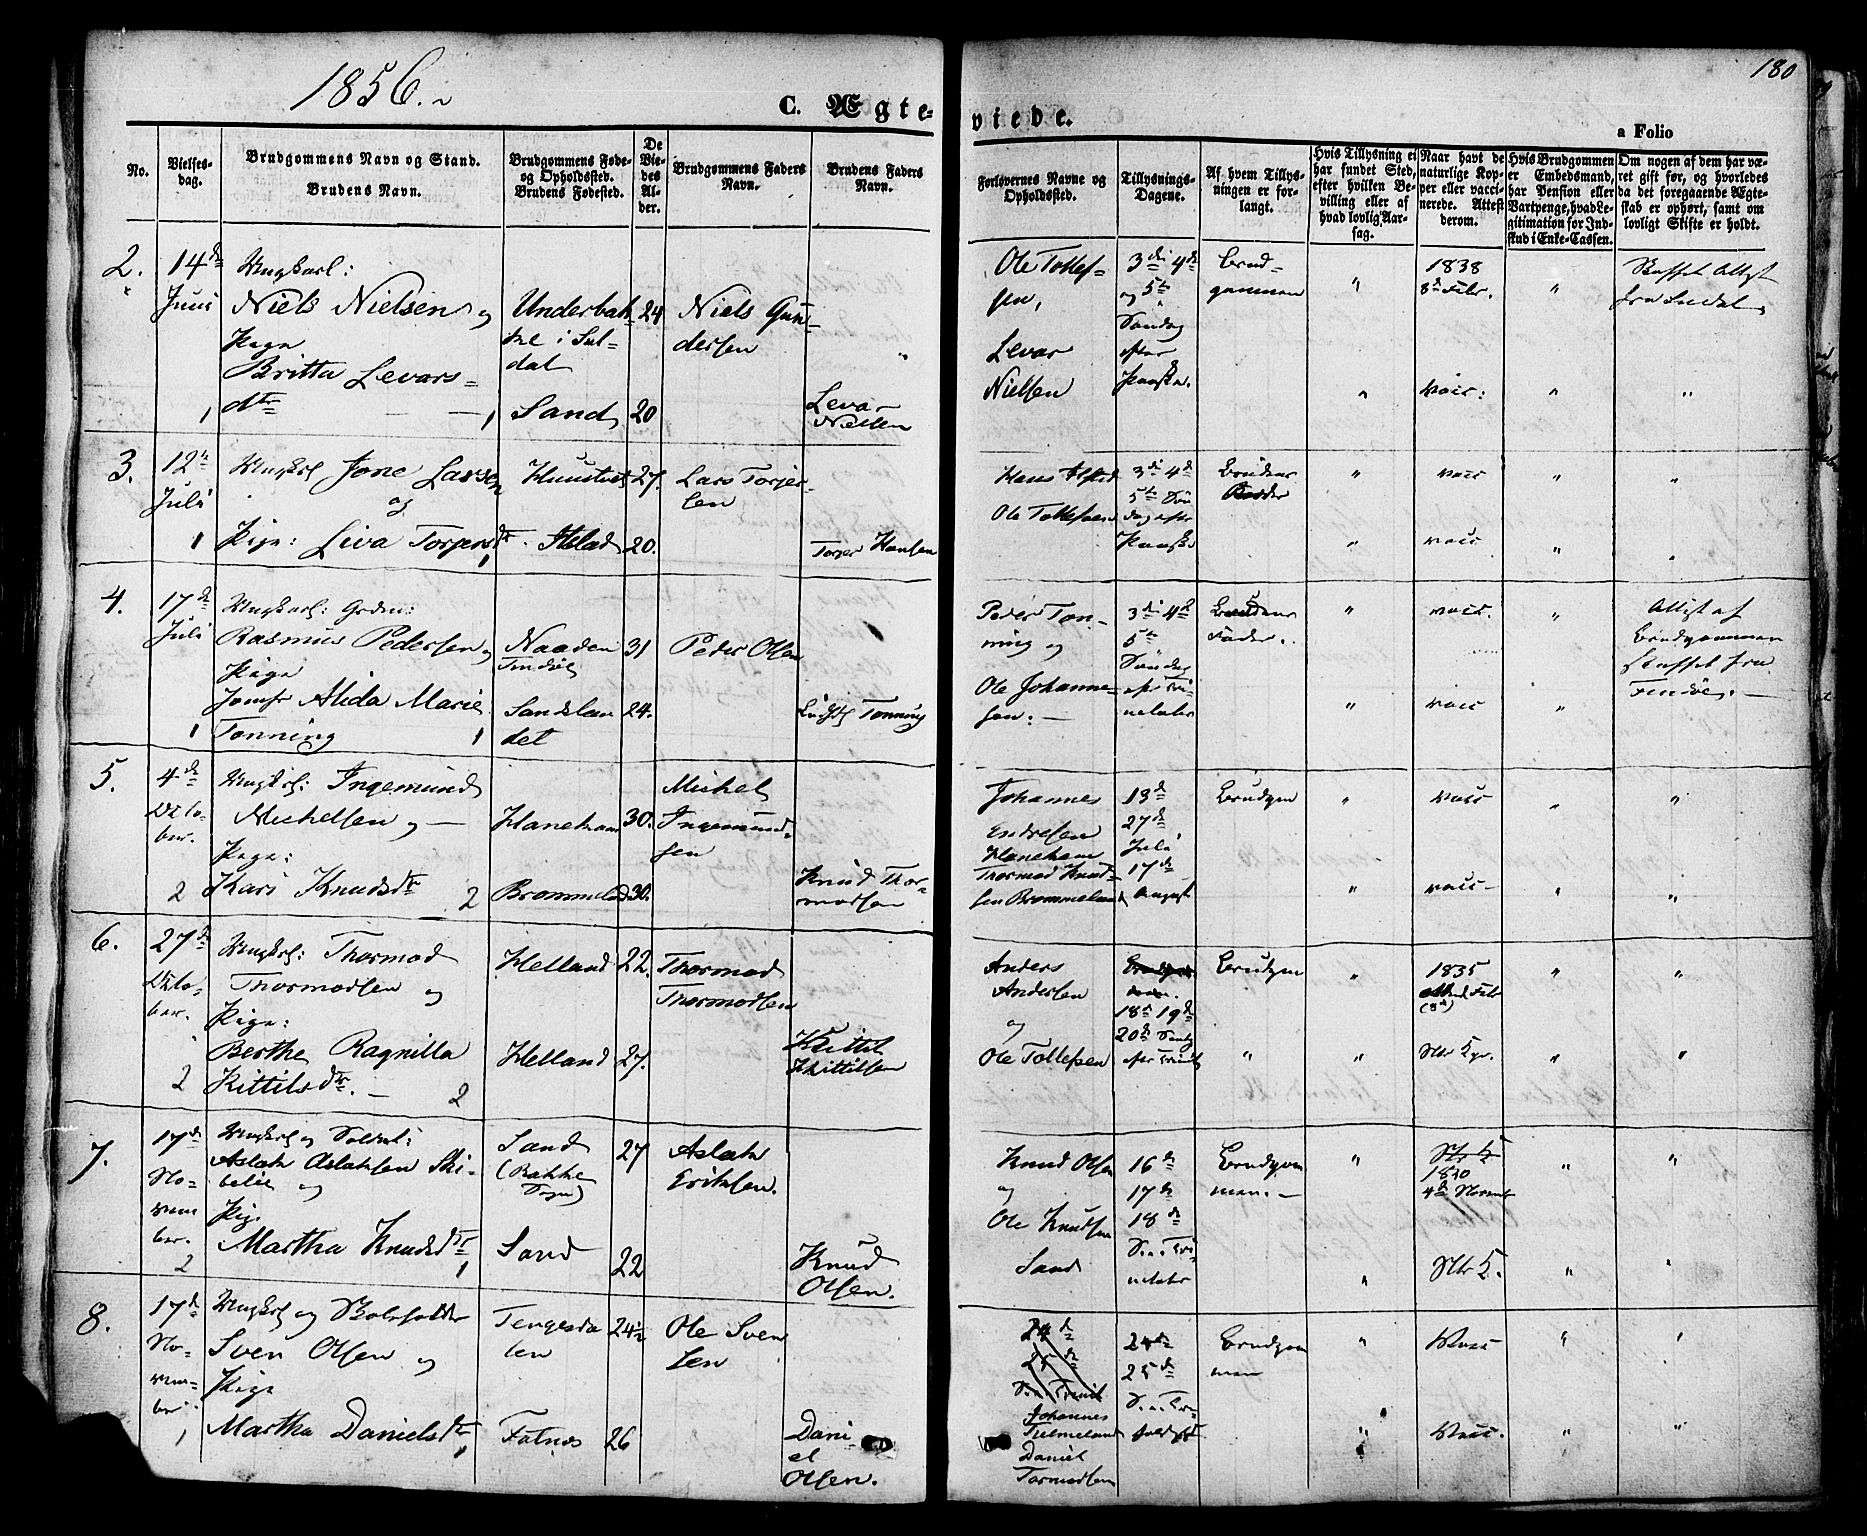 1856.
180
C. Ægte-
viede.
a Folio
No.
Vielses-
dag.
Brudgommens Navn og Stand.
Brudens Navn.
Brudgommens Føde-
og Opholdssted.
Brudens Fødested.
De
Vie-
des
Al-
der.
Brudgommens Faders
Navn.
Brudens Faders
Navn.
Forlovernes Navne og
Opholdssted.
Tillysnings-
Dagene.
Af hvem Tillys-
ningen er for-
langt.
Hvis Tillysning ei
har fundet Sted,
efter hvilken Be-
villing eller af
hvad lovlig Aar-
sag.
Naar havt de
naturlige Kop-
per eller vacci-
nerede. Attest
derom.
Hvis Brudgommen
er Embedsmand,
har Pension eller
Vartpenge, hvad Le-
gitimation for Ind-
skud i Enke-Cassen.
Om nogen af dem har væ-
ret gift før, og hvorledes
da det foregaaende Ægte-
skab er ophørt, samt om
lovligt Skifte er holdt.
2.
14de
Juni
Ungkarl:
Niels Nielsen og
Pige
Britta Levars-
dtr
1
1
Underbak-
ke i Sul-
dal
Sand
24
20
Niels Gun-
dersen
Levar
Nielsen
Ole Tollef-
sen,
Levar
Nielsen
3die 4de
og 5te
Søndag
efter
Paaske.
Brud-
gommen
1838
8de Febr.
vacc:
Skaffet Attest
fra Suldal
3.
12te
Juli
1
Ungkl Jone Larsen
og
Pige: Liva Torgersdtr
1
27.
20.
Lars Torjer-
sen
Torger Hansen
Ole Tollefsen
3die 4de
5te Søn
dag efter
Paaske
Brudens
Fader
vacc
vacc
4.
17de
Juli
1
Ungkarl:
Rasmus Pedersen og
Pige
Jomfr Alida Marie
Tonning
1
Naaden
Findøe
Sandslan
det
31
24.
Peder Olsen
Tonning
Peder Ton-
ning og
Ole Johanne-
sen. —
3die 4de
5te
Søndag
efter Tri-
nitatis
Brudens
Fader.
vacc.
vacc
Attest af
Brudgommen
skaffet fra
Findøe. —
5.
4de
Octo-
ber.
2
Ungkl: Ingemund
Michelsen og —
Pige:
Kari Knudsdtr
2
Haneham
Brommeland
30.
30.
Michel
Ingemund-
sen
Knud Thor-
modsen
Johannes
Endresen
Haneham
Thormod Knud-
sen Brommeland
13de
27de
Juli
17de
August
Brudgom
vacc
vacc
6.
27de
Octo-
ber.
2
Ungkl: Thormod
Thormodsen og
Pige:
Berthe Ragnilla
Kittilsdtr. —
2
Helland
Helland
22.
27.
Thormod
Thormodsen
Kittil
Kittilsen
Anders
Andersen
og
Ole Tollefsen
18de 19de
20de Søndg
efter Trinit
Brudgom
1835
7.
17de
No-
vem
ber.
2
Ungkl og Soldat:
Aslak Aslaksen Ski-
belie og
Pige
Martha Knudsdtr
1
Sand
(Bakke
Sogn)
Sand
27
22
Aslak
Eriksen.
Knud
Olsen.
Knud Olsen
og
Ole Knudsen
Sand
16de
17de
18de
S. e. Tri-
nitatis
Brudgom
men. —
4de Novemb
8.
17de
No-
vem-
ber
1
Sven Olsen og
Pige
Martha Danielsdtr
1
Tengesda
len
Fatnes
24½
26
Ole Sven
sen
Dani-
el
Olsen.
24de
25de
S. e. Trinit
Johannes
Daniel
Tormodsen
24de
25de
Brudgom
men
Vacc
Vacc.